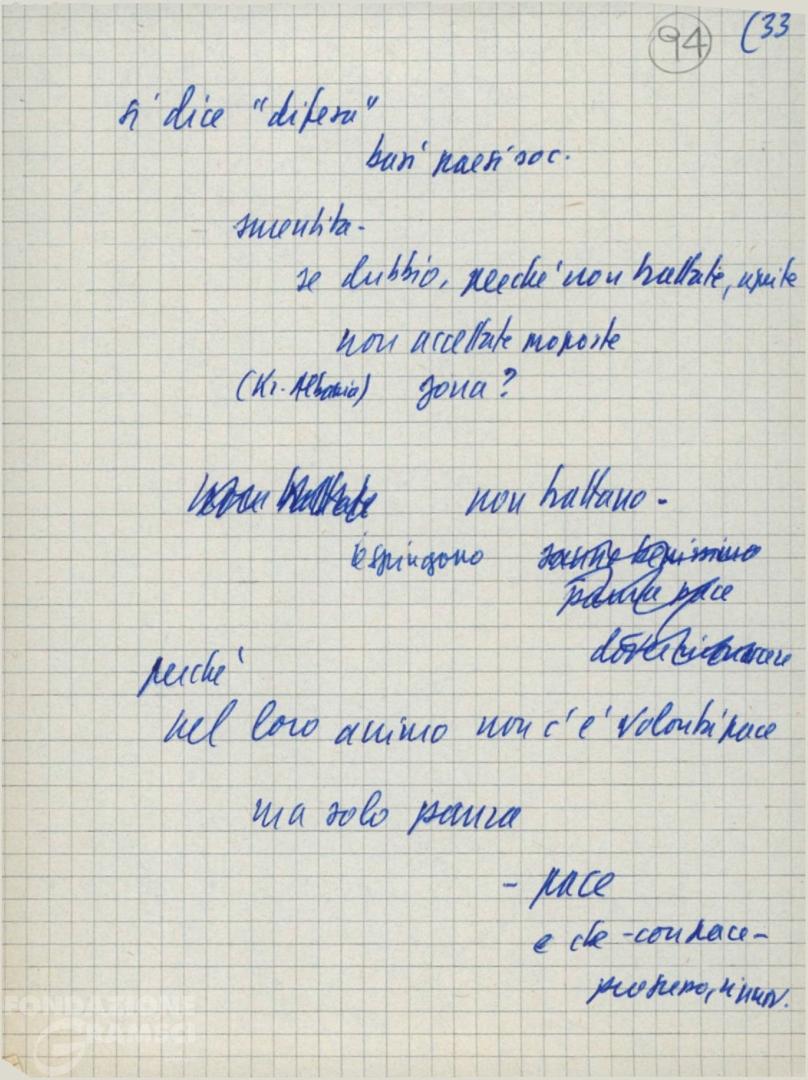 94 (33
si dice "difesa"
basi paesi soc.
smentita-
se dubbio, perché non trattate,
non accettate proposte
(Kr. Albania) zona?
non trattate non trattano-
respingono sanno benissimo
paura pace
perché
nel loro animo non c'è volontà pace
ma solo paura
- pace
e che -con pace-
progresso, rinnov.
FONDAZIONE
GRAMSCI